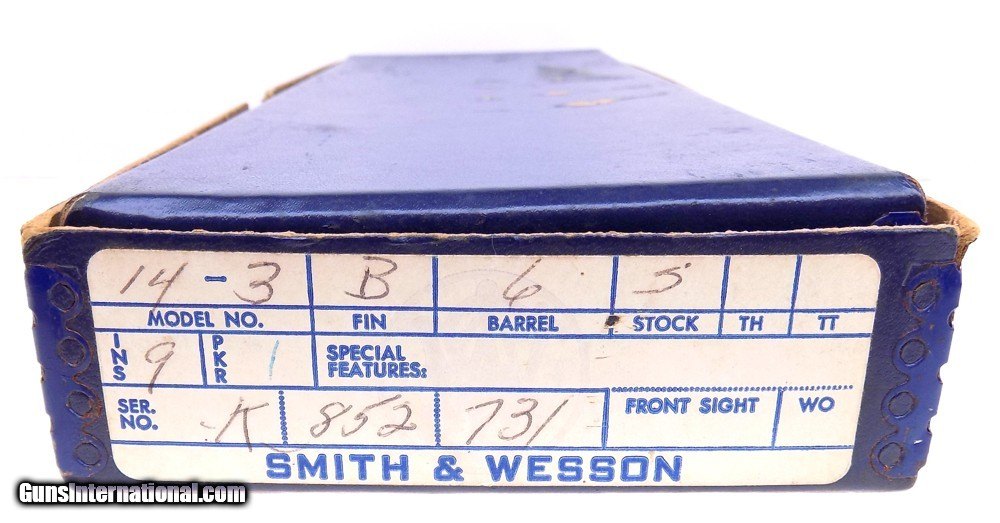 14-3 B 6 S
MODEL NO. FIN BARREL STOCK TH TT
INS 9 PKR 1 SPECIAL FEATURES:
SER. NO. K 852 731 FRONT SIGHT WO
SMITH & WESSON
GunsInternational.com